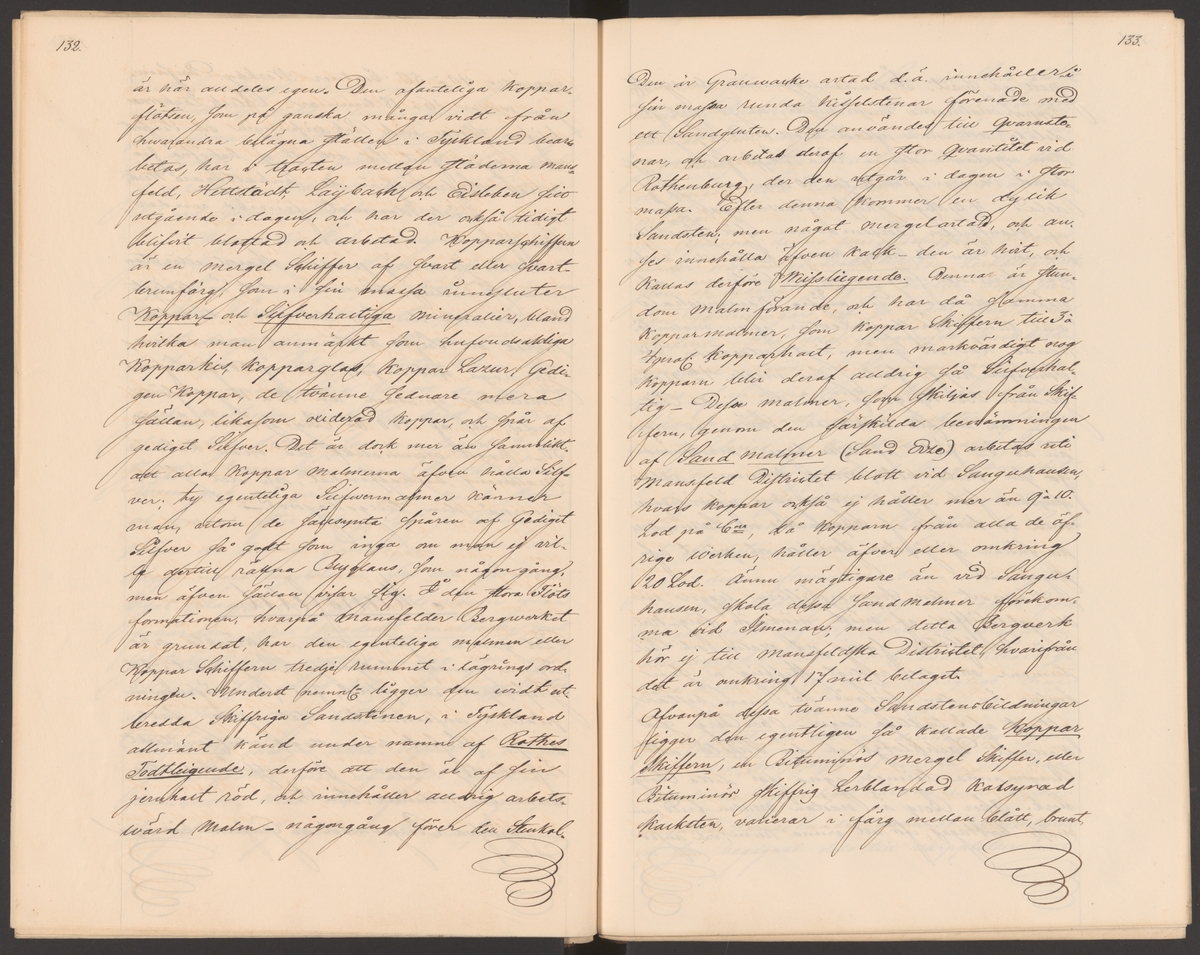 132.
är här alldeles egen. Den ofanteliga Koppar-
flötsen, som på ganska många vidt ifrån
hwarandra belägna ställen i Tyskland bear-
betas, har i trakten mellan städerna Mans-
feld, Hettstädt, Leijbach och Eisleben sitt
utgående i dagen, och har der också tidigt
blifvit blottad och arbetad. Kopparschiffern
är en mergel Schiffer af svart eller svart-
brunfärg, som i sin massa innesluter
Koppar- och Silfverhaltiga mineralier, bland
hvilka man anmärkt som hufvudsakliga
Kopparkis, Kopparglas, Koppar Lazur, Gedi-
gen Koppar, de tvänne sednare mera
sällan, likasom oxiderad Koppar, och spår af
gediget Silfver. Det är dock mer än sannolikt
att alla Koppar malmerna äfven hålla Silf-
ver; ty egenteliga Silfwermalmer känner
man, utom de sällsynta spåren af Gediget
Silfver så godt som inga om man ej vil-
le dertill räkna Blyglans, som någon gång,
men äfven sällan visar sig. I den stora Flöts
formationen, hvarpå Mansfelder Bergwerket
är grundat, har den egenteliga malmen eller
Koppar Schiffern tredje rummet i lägrings ord-
ningen. Underst nemnl. ligger den widt ut-
bredda Skiffriga Sandstenen, i Tyskland
allmänt känd under namn af Rothes
Todtleigende, derföre att den är af sin
jernhalt röd, och innehåller aldrig arbets-
wärd Malm - någongång förer den Stenkol.
133.
Den är Grauwacke artad d.ä. innehåller i
sin massa runda Kisselstenar förenade med
ett Sandgluten. Den användes till Qvarnste-
nar, och arbetas deraf en stor qvantitet vid
Rothenburg, der den utgår i dagen i stor
massa. Efter denna kommer en dylik
Sandsten; men något mergelartad, och an-
ses innehålla äfven Kalk - den är hvit, och
kallas derföre Weissliegende. Denna är stun-
dom Malmförande, och har då samma
Kopparmalmer, som Koppar Skiffern till 3 à
4 proC. Kopparhalt, men markvärdigt nog
Kopparn blir deraf aldrig så Silfverhal-
tig - Dessa malmer, som skiljas från Skif-
fern, genom den särskilda benämningen
af Sand malmer (Sand Erze) arbetas uti
Mansfeld Districtet blott vid Sangerhausen,
hvars Koppar också ej håller mer än 9 à 10.
Lod på C, då Kopparn från alla de öf-
rige Werken, håller äfver eller omkring
20 Lod. Ännu mägtigare än vid Sanger-
hausen, skola dessa Sandmalmer förekom-
ma vid Ilmenau; men detta Bergverk
hör ej till Mansfeldska Districtet, hvarifrån
det är omkring 17 mil belaget.
Ofvanpå dessa tvänne Sandstensbildningar
ligger den egentligen så kallade Koppar
Skiffern, en Bituminös mergel Skiffer, eller
Bituminös skiffrig Lerblandad Kolsyrad
Kalksten, varierar i färg mellan blått, brunt